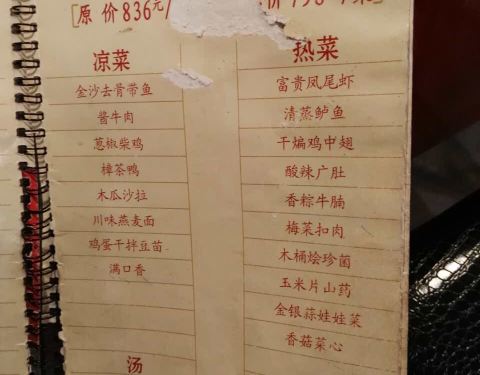 [原价836元/
凉菜
金沙去骨带鱼
酱牛肉
葱椒柴鸡
樟茶鸭
木瓜沙拉
川味燕麦面
鸡蛋干拌豆苗
满口香
汤
热菜
富贵凤尾虾
清蒸鲈鱼
干煸鸡中翅
酸辣广肚
香粽牛腩
梅菜扣肉
木桶烩珍菌
玉米片山药
金银蒜娃娃菜
香菇菜心